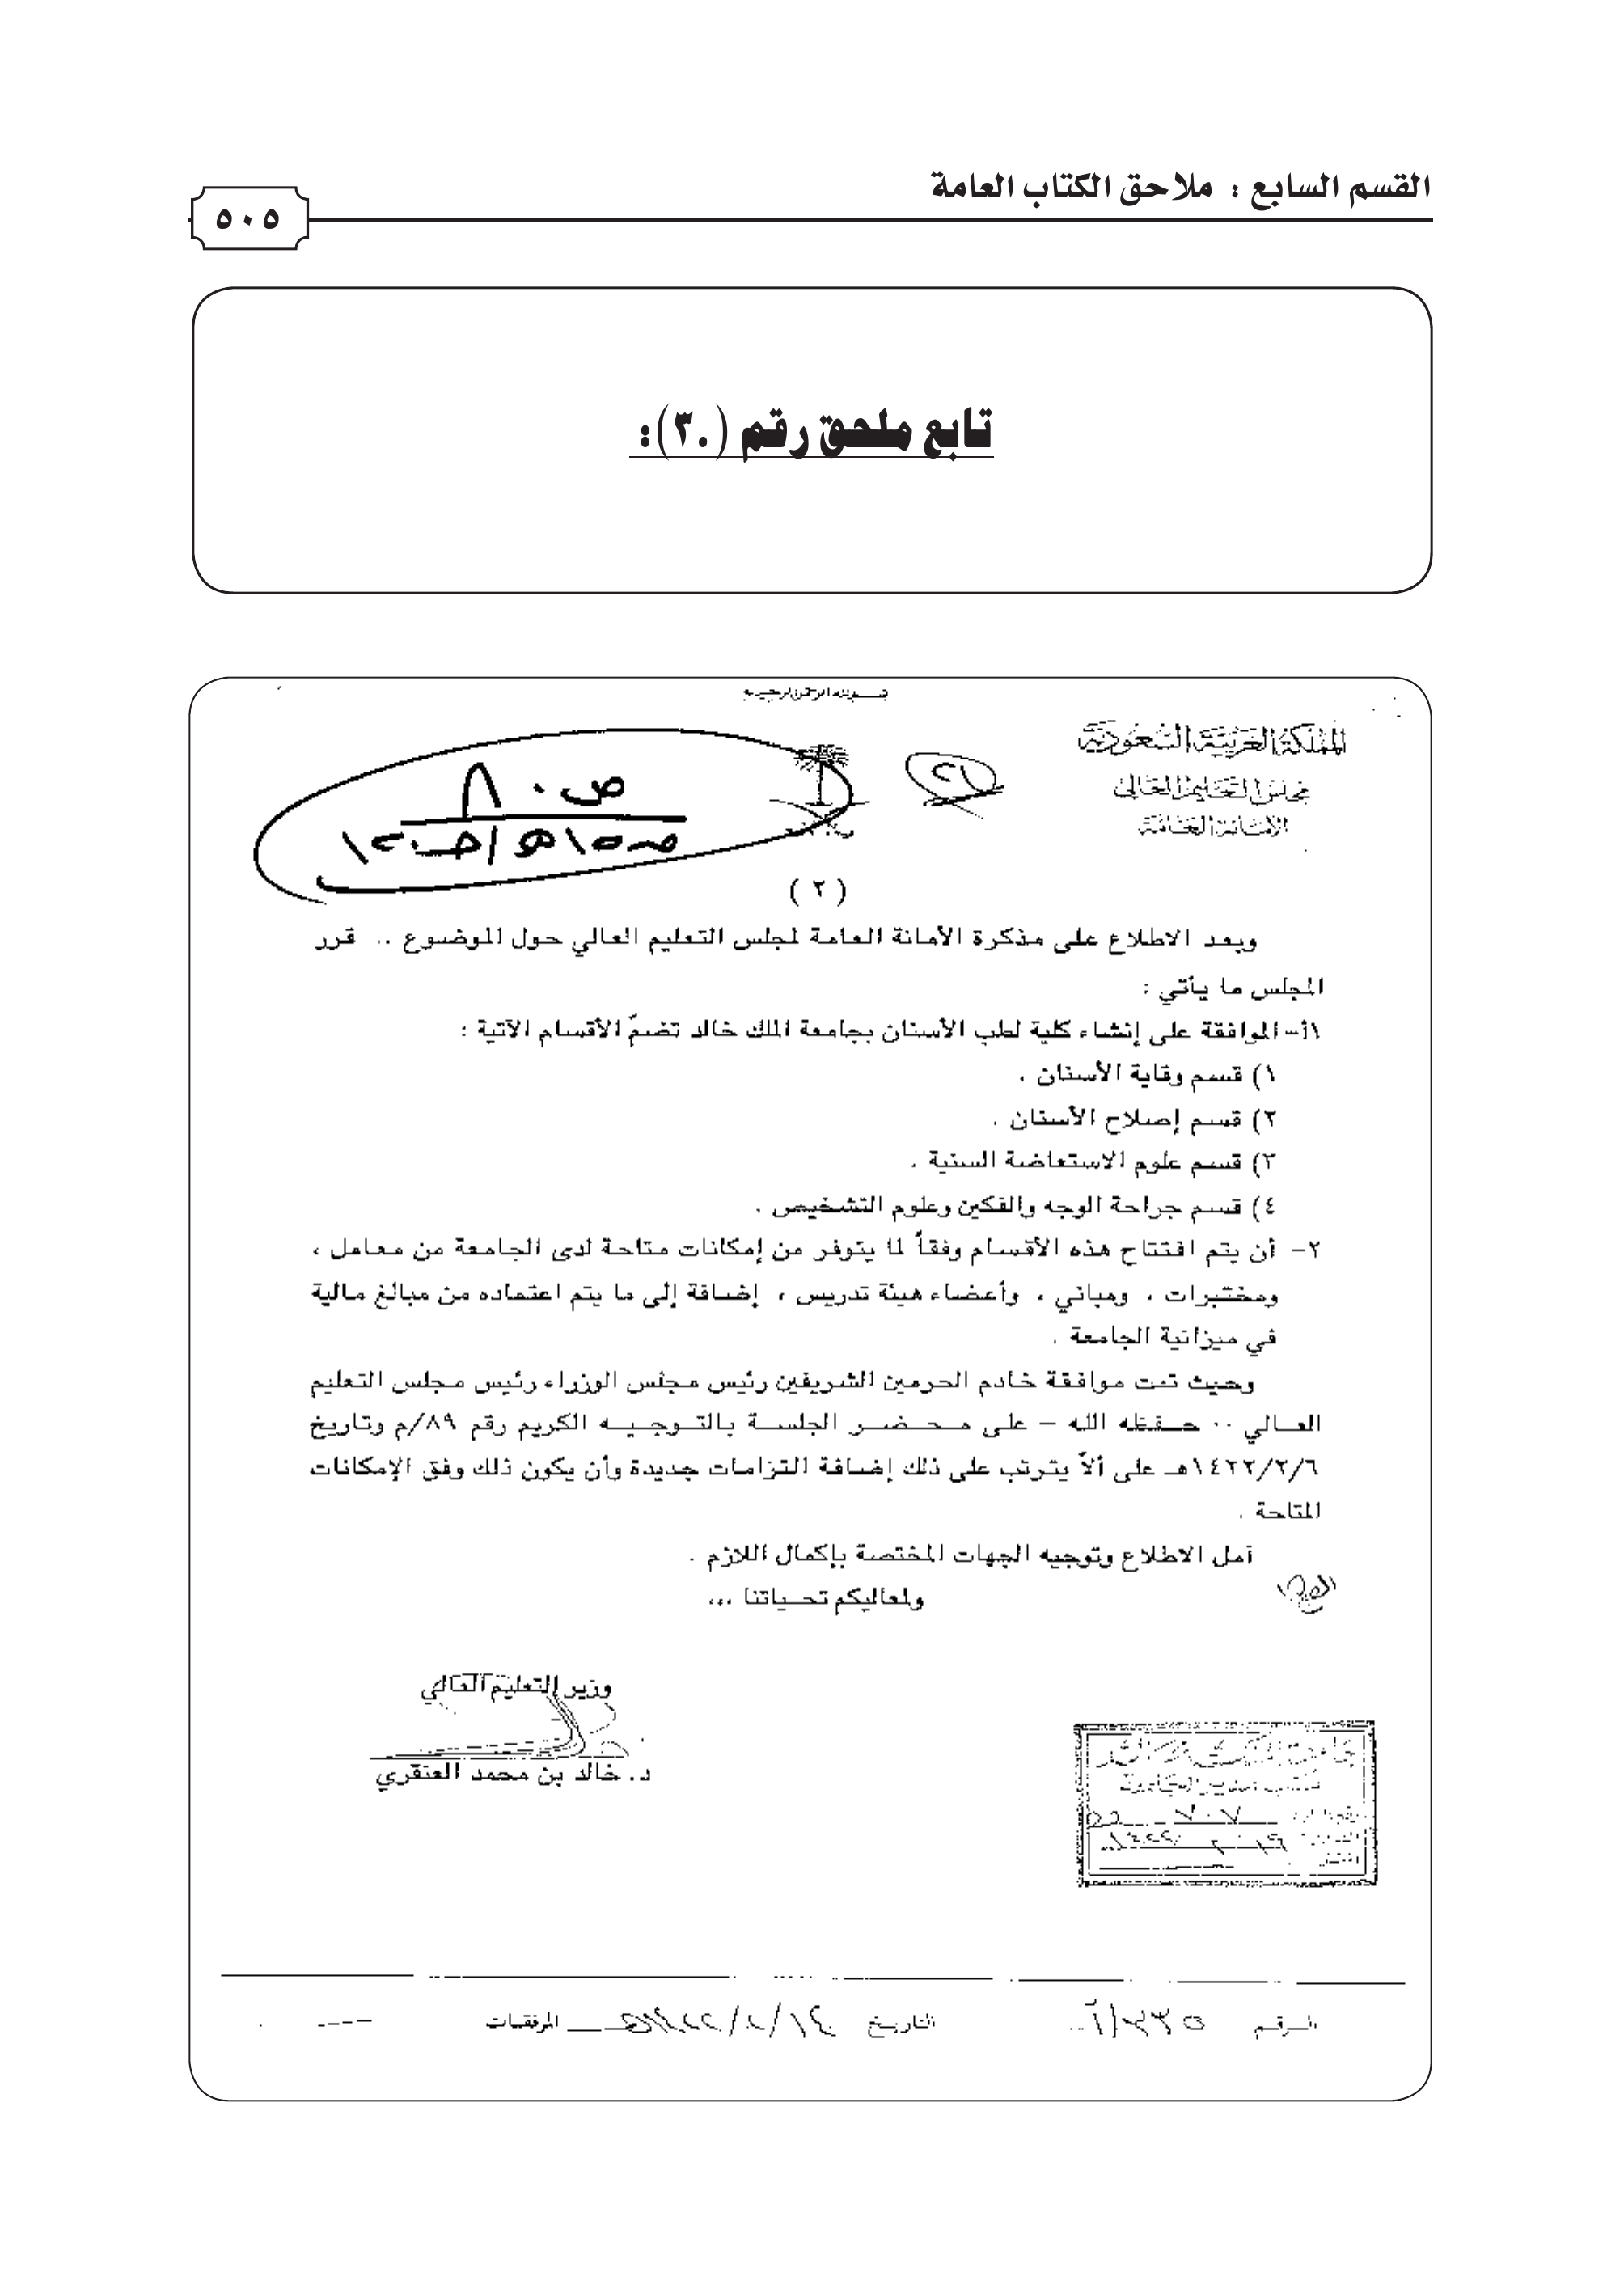 القسم السابع : ملاحق الكتاب العامة
٥٠٥
تابع ملحق رقم (٣٠):
بسم الله الرحمن الرحيم
المملكة العربية السعودية
مجلس التعليم العالي
الأمانة العامة
( ٢ )
وبعد الاطلاع على مذكرة الأمانة العامة لمجلس التعليم العالي حول الموضوع .. قرر
المجلس ما يأتي :
١أ- الموافقة على إنشاء كلية لطب الأسنان بجامعة الملك خالد تضمّ الأقسام الآتية :
١) قسم وقاية الأسنان .
٢) قسم إصلاح الأسنان .
٣) قسم علوم الاستعاضة السنية .
٤) قسم جراحة الوجه والفكين وعلوم التشخيص .
٢- أن يتم افتتاح هذه الأقسام وفقاً لما يتوفر من إمكانات متاحة لدى الجامعة من معامل ،
ومختبرات ، ومباني ، وأعضاء هيئة تدريس ، إضافة إلى ما يتم اعتماده من مبالغ مالية
في ميزانية الجامعة .
وحيث تمت موافقة خادم الحرمين الشريفين رئيس مجلس الوزراء رئيس مجلس التعليم
العالي .. حفظه الله – على محضر الجلسة بالتوجيه الكريم رقم ٨٩/م وتاريخ
١٤٢٢/٢/٦هـ على ألاّ يترتب على ذلك إضافة التزامات جديدة وأن يكون ذلك وفق الإمكانات
المتاحة .
آمل الاطلاع وتوجيه الجهات المختصة بإكمال اللازم .
ولمعاليكم تحياتنا ،،،
وزير التعليم العالي
د. خالد بن محمد العنقري
مكتب مدير الجامعة
الرقم
التاريخ
المرفقات